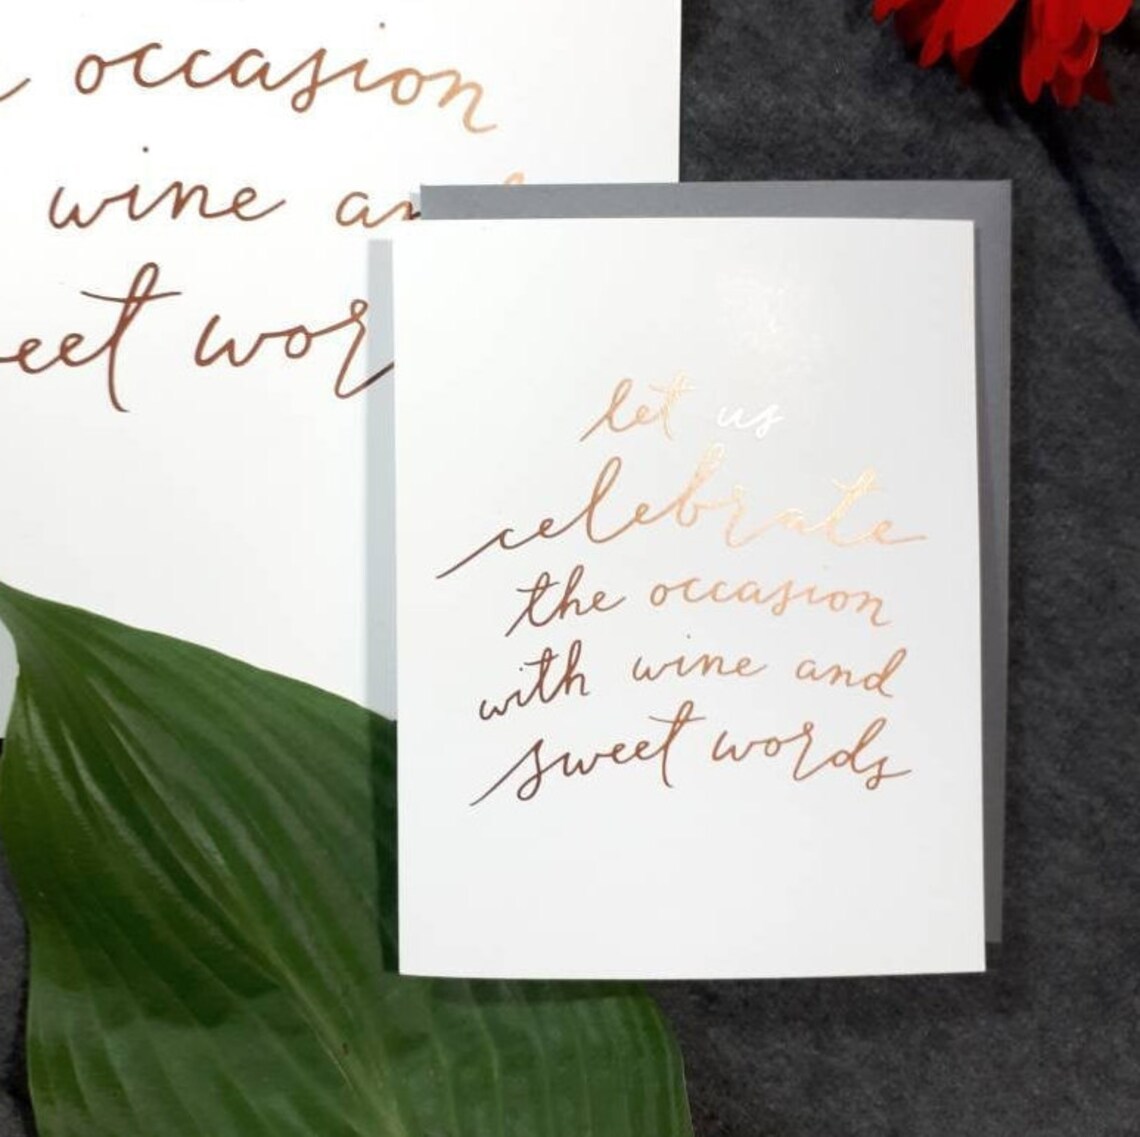 occasion
wine an
eet wor
let us
celebrate
the occasion
with wine and
sweet words